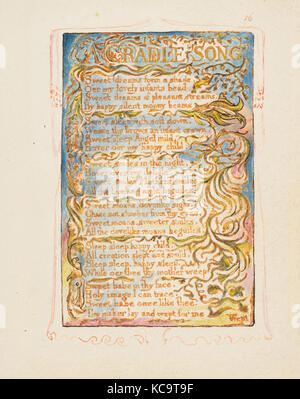 16
A CRADLE SONG
Sweet dreams form a shade
O'er my lovely infants head
Sweet dreams of pleasant streams
By happy silent moony beams
Sweet sleep with soft down
Weave thy brows an infant crown
Sweet sleep Angel mild
Hover o'er my happy child
Sweet smiles in the night
Sweet moans, dovelike sighs
Chase not slumber from thy eyes
Sweet moans, sweeter smiles
All the dovelike moans beguiles
Sleep sleep happy child
All creation slept and smil'd
Sleep sleep, happy sleep,
While o'er thee thy mother weep
Sweet babe in thy face
Holy image I can trace
Sweet babe once like thee
Thy maker lay and wept for me
Wept
alamy
KC9T9F